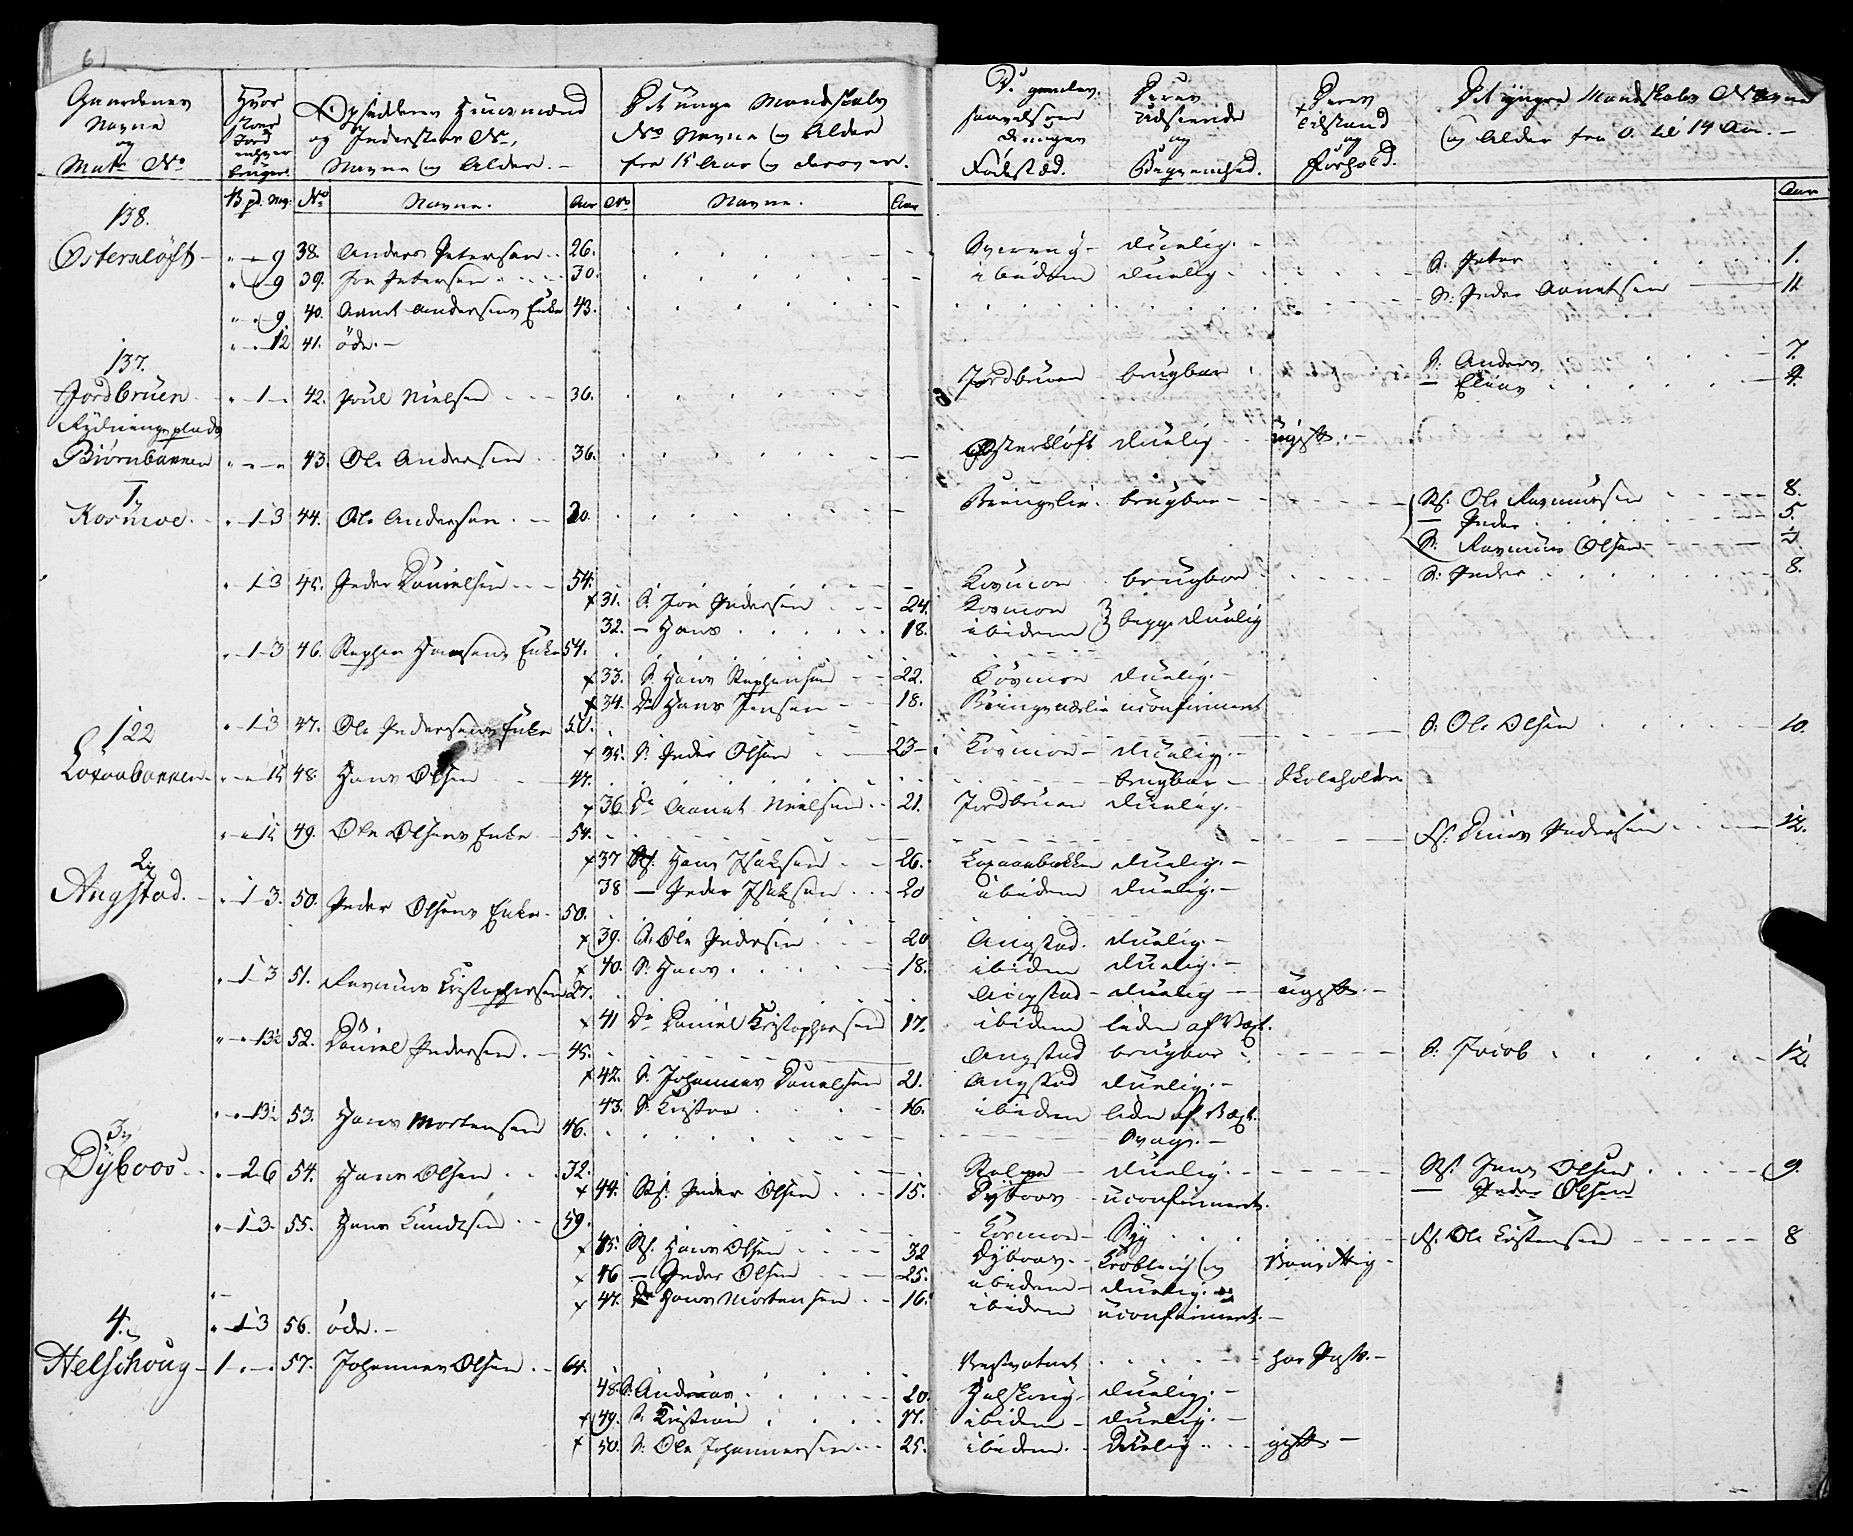 6)
Gaardenes Navne og Matr. No
Hvor stoer Jord enhver bruger.
Opsiddere Huusmænd og Inderster No, Navne og Alder. —
Det unge Mandskabs No Navne og Alder fra 15 Aar og derover.
De gamles saavelsom Drenges Fødested.
Deres Udseende og Beqvemhed.
Deres Tilstand og Forhold.
Det yngre Mandskabs Navne og Alder fra 0. til 14 Aar. —
B pd. Mrg. No Navne. Aar No Navne. Aar Aar
138.
Østersløft - 9 38. Anders Petersen 26. Sverrig - duelig. S. Peter 1.
9 39. Jon Petersen 30. ibidem duelig S. Peder Arentsen 11
9 40. Arent Andersens Enke 43.
12 41. öde. —
137.
Jordbruen 1 42. Poul Nielsen 36. Jordbruen brugbar S. Anders 7.
— Elias 4.
Rydningsplads
Biørnbakken 43. Ole Andersen 36. Østersløft duelig ugift. —
1.
Kosmoe. 1 3 44. Ole Andersen 30. brugbar St. Ole Rasmussen 8.
— Peder 5.
S. Rasmus Olsen
1 3 45. Peder Danielsen 54. Kosmoen brugbar S. Peder 8.
× 31. S. Jon Pedersen 24. Kosmoen
32. — Hans 18. ibidem } begge duelig
1 3 46. Stephen Hansens Enke 54.
× 33. S. Hans Stephensen 22. Kosmoen duelig. —
× 34. Dr Hans Jensen 18. uconfirmert
122
1 3 47. Ole Pedersens Enke 50. S. Ole Olsen 10.
× 35. S. Peder Olsen 23 Kosmoen duelig.
Loxaabakken 48. Hans Olsen 47. brugbar — Skoleholder
× 36 Dr Arent Nielsen 21. Jordbruen duelig. —
49. Ole Olsens Enke 54. Pedersen 12.
× 37 St. Hans Isaksen 26. Loxaaebakken duelig. —
38 — Peder Isaksen 20 ibidem duelig. —
2.
Angstad. 1 3. 50. Peder Olsens Enke 50.
× 39. S. Ole Pedersen 20 Angstad. duelig —
× 40. S. Hans 18. ibidem duelig. —
1 3 51. Rasmus Cristophersen 27. Angstad - duelig — ugift. —
× 41 Dr Daniel Kristophersen 17. ibidem liden af Vext.
13½ 52. Daniel Pedersen 45. Angstad brugbar S. Jacob 12.
× 42. S. Johannes Danielsen 21. Angstad duelig. —
43. S. Cristen 16. ibidem liden af Vext.
13½ 53. Hans Mortensen 46. Svag. —
3.
Dÿboos 2 6 54. Hans Olsen 32. duelig. St. Jens Olsen 9.
× 44. St. Peder Olsen 15. Dyboes uconfirmert. — Peder Olsen
1 3. 55. Hans Knudsen 59. Kosmoen St. Ole Cristensen 8
× 45. St. Hans Olsen 32 Dyboes - Krøbling og Vanvittig -
× 46 — Peder Olsen 25. ibidem - duelig.
× 47. Dr Hans Mortensen 16. ibidem uconfirmert. —
4.
1 3 56. öde. —
Helschoug 1 57. Johannes Olsen 64. har Pass. —
48. S. Andreas 20. Helskoug duelig. —
× 49. S. Kristian 17. ibidem - duelig. —
× 50. S. Ole Johannesen 25. ibidem. - Duelig gift. —